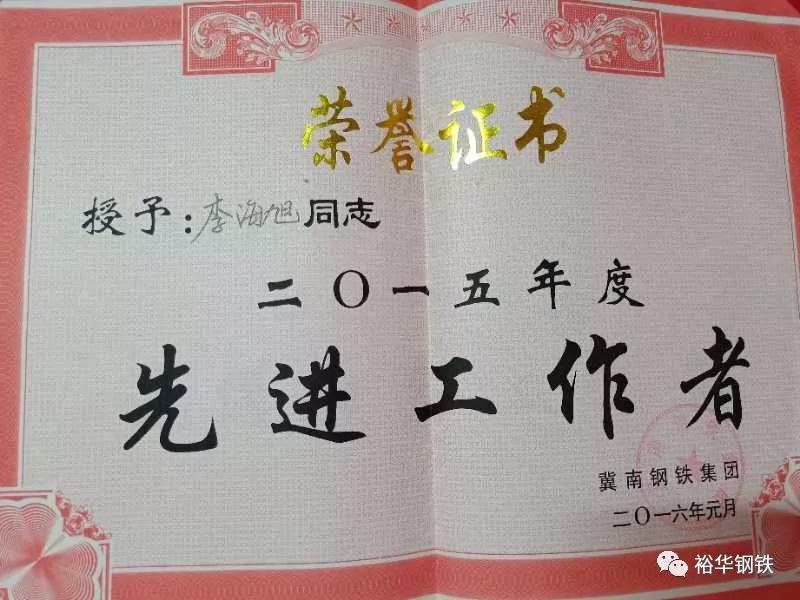 荣誉证书
授予:李海旭同志
二〇一五年度
先进工作者
冀南钢铁集团
二〇一六年元月
裕华钢铁